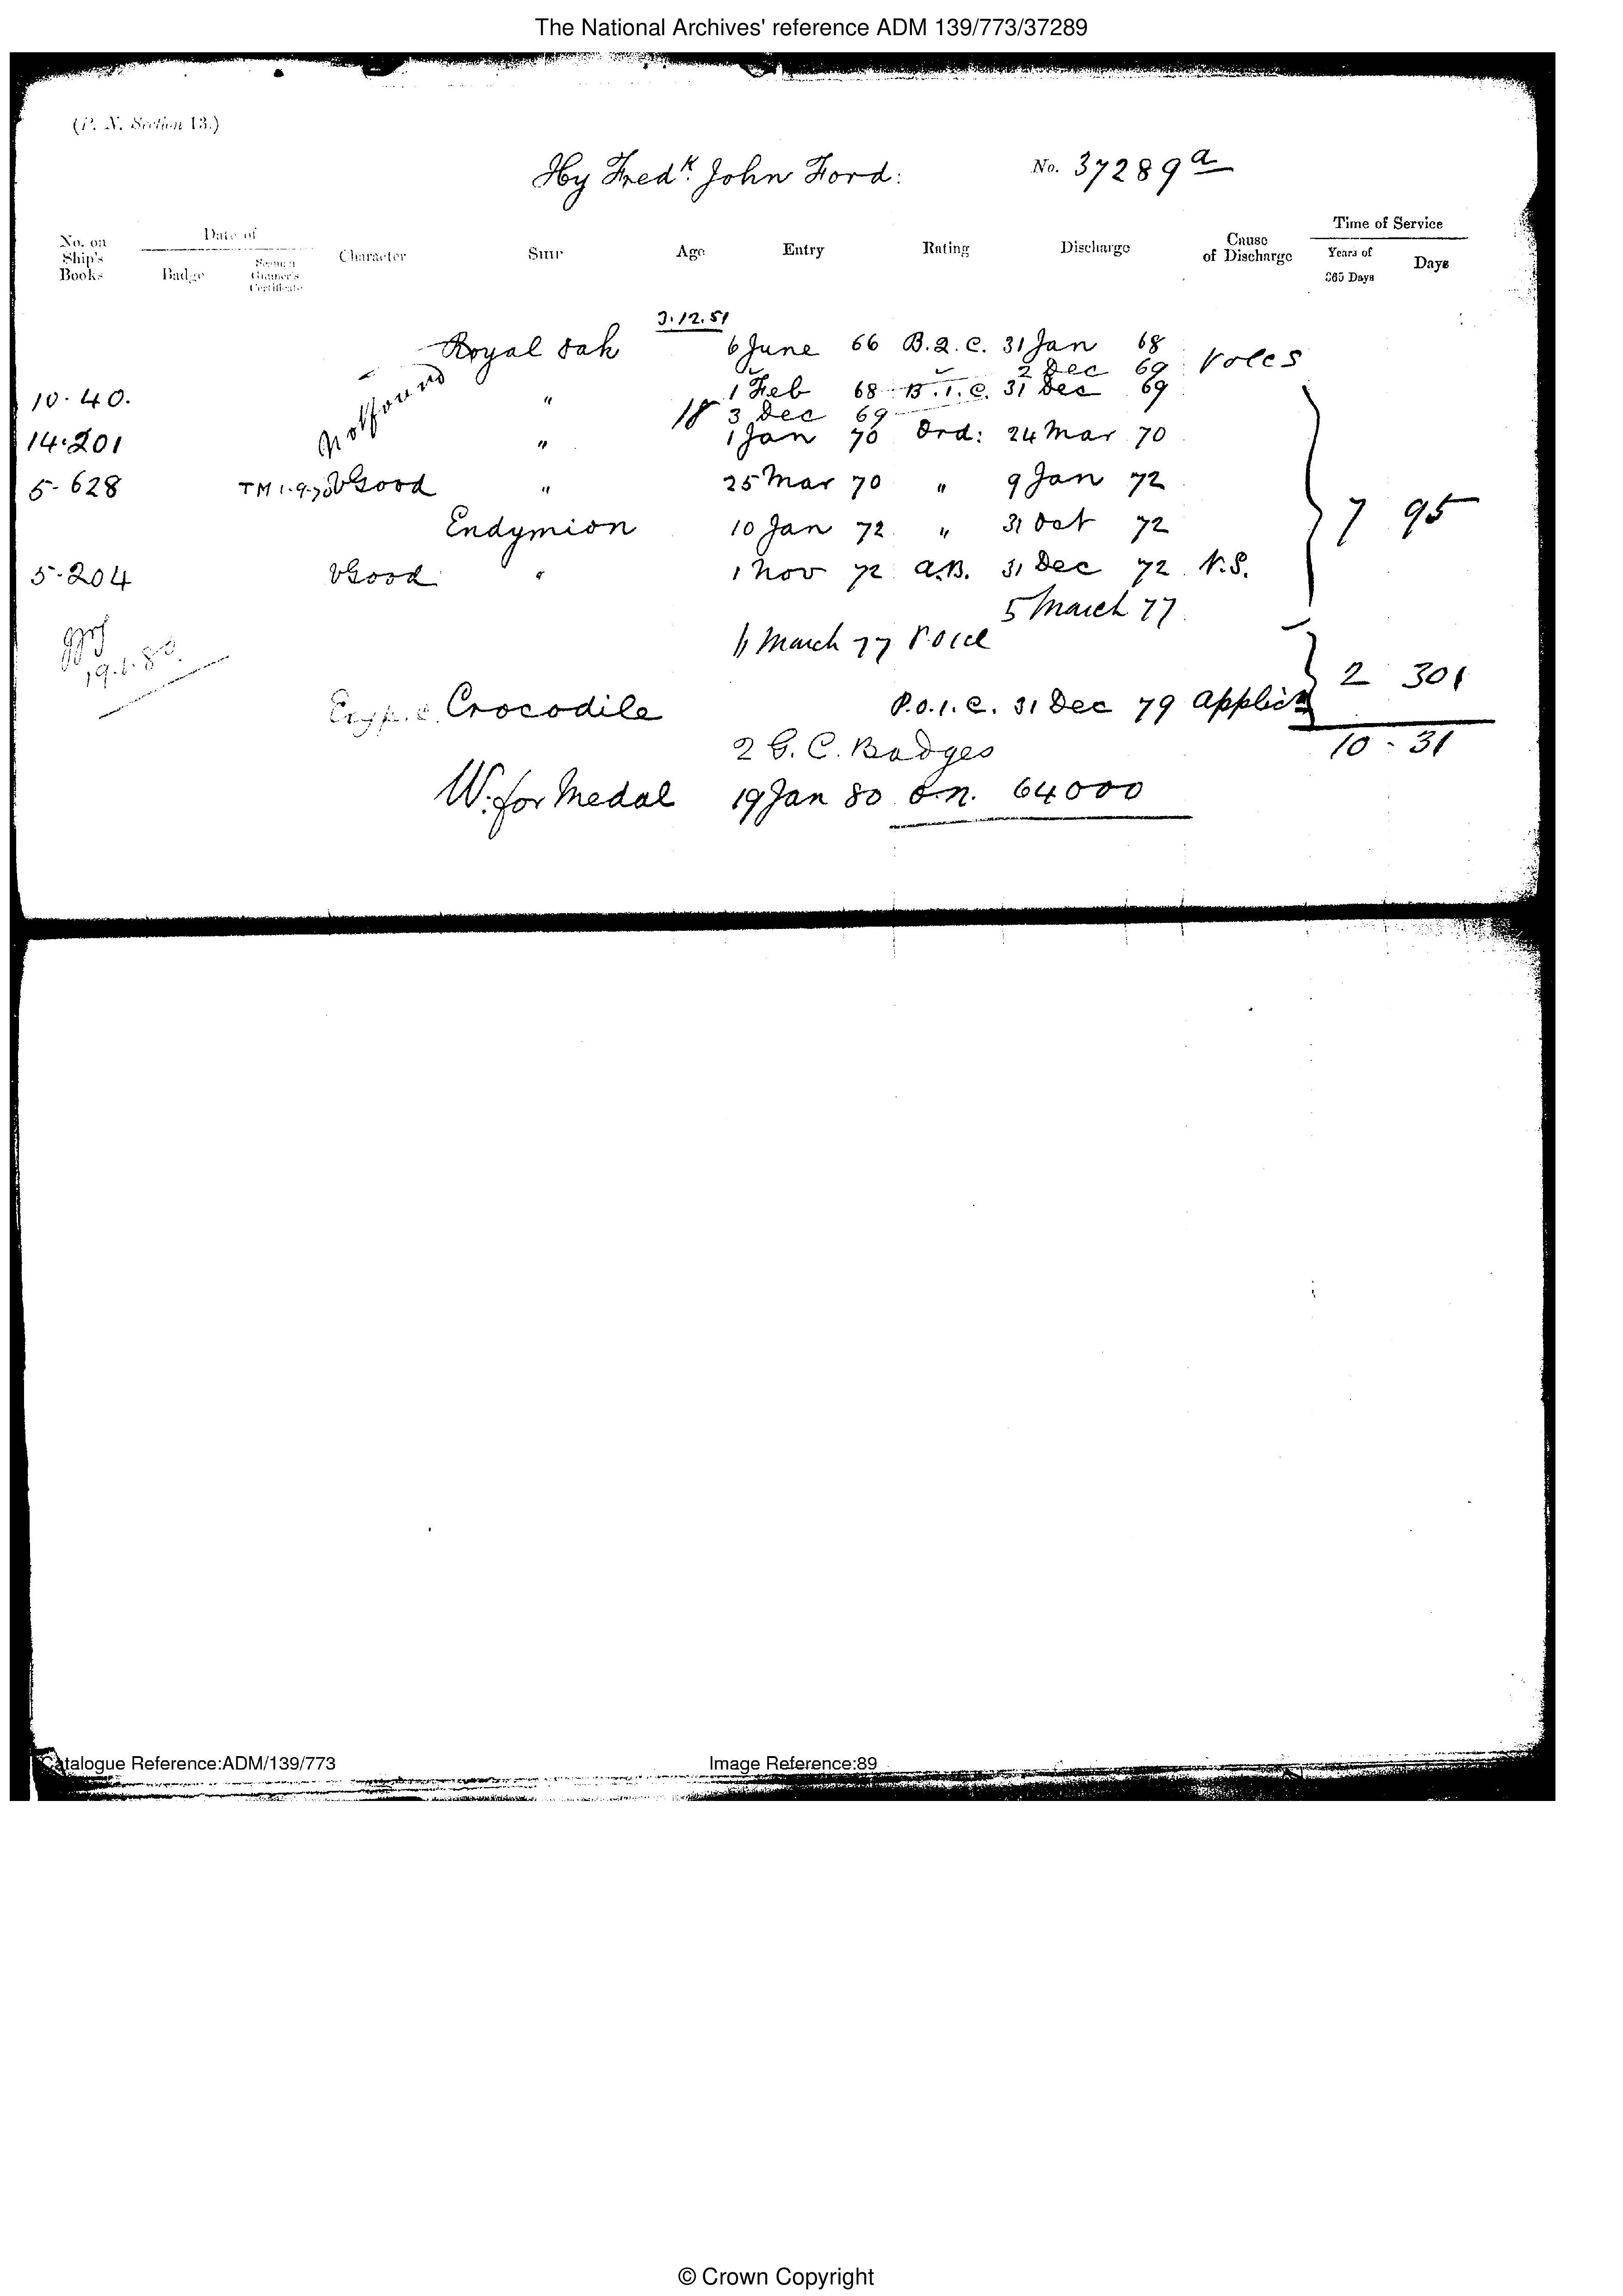 The National Archives' reference ADM 139/773/37289
(P. N. Section 13.)
Hy Fredk. John Ford: No. 37289 a
No. on Ship's Books Date of Badge Seaman Gunner's Certificate Character Ship Age Entry Rating Discharge Cause of Discharge Time of Service Years of 365 Days Days
3.12.51
Royal Oak 6 June 66 B.2.C. 31 Jan 68
2 Dec 69 Voles
10.40. Not found " 1 Feb 68 B.1.C. 31 Dec 69
18 3 Dec 69
14.201 " 1 Jan 70 Ord: 24 Mar 70
5-628 TM 1.9.70 VGood " 25 Mar 70 " 9 Jan 72
7 95
Endymion 10 Jan 72 " 31 Oct 72
5-204 VGood " 1 Nov 72 A.B. 31 Dec 72 N.S.
5 March 77
6 March 77
19.1.80.
2 301
Crocodile P.O.1.C. 31 Dec 79 Applicn
2 G.C. Badges 10 - 31
W. for Medal 19 Jan 80 O.N. 64000
Catalogue Reference:ADM/139/773 Image Reference:89
© Crown Copyright